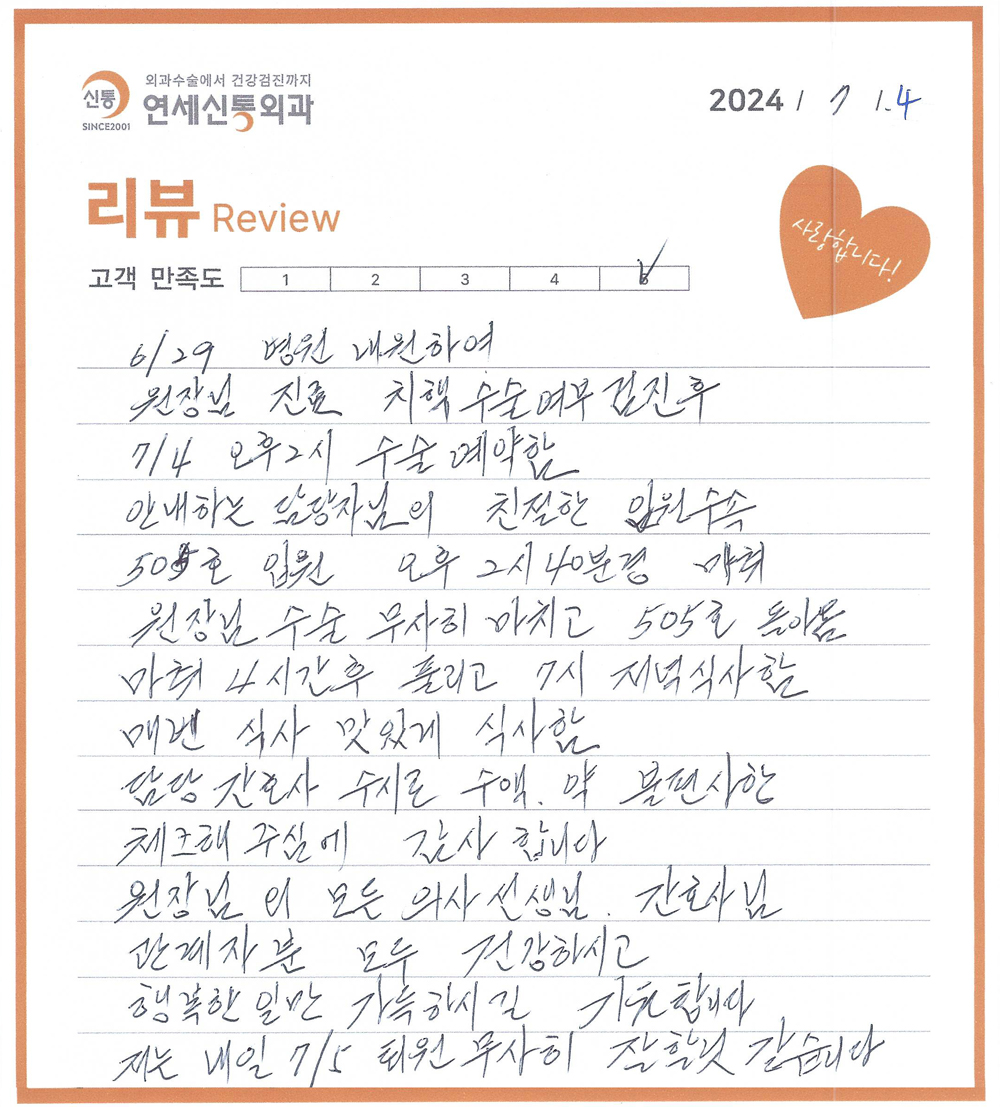 외과수술에서 건강검진까지
신통
연세신통외과
SINCE2001
2024 / 7 / . 4
리뷰 Review
사랑합니다!
고객 만족도 1 2 3 4 5
6/29 병원 내원하여
원장님 진료 치핵 수술여부 검진후
7/4 오후2시 수술예약함
안내하는 담당자님의 친절한 입원수속
505호 입원 오후 2시40분경 마취
원장님 수술 무사히 마치고 505호 돌아옴
마취 4시간후 풀리고 7시 저녁식사함
매번 식사 맛있게 식사함
담당 간호사 수시로 수액. 약 불편사한
체크해 주심에 감사 합니다
원장님 외 모든 의사선생님. 간호사님
관계자분 모두 건강하시고
행복한 일만 가득하시길 기원합니다
저는 내일 7/5 퇴원 무사히 잘할것 같습니다